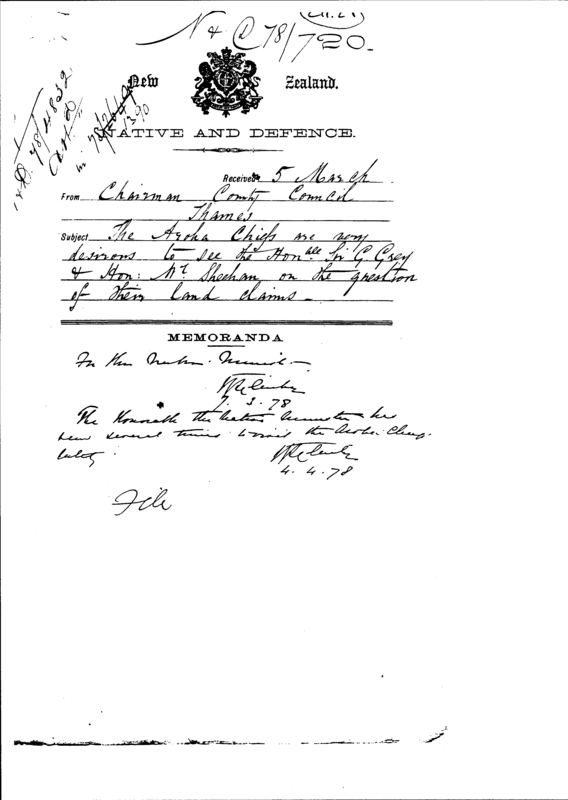 N & D 78/720.
New Zealand.
NATIVE AND DEFENCE.
Received 5 March
From Chairman County Council
Thames
Subject The Aroha Chiefs are very
desirous to see the Honble Sir G. Grey
& Hon: Mr Sheehan on the question
of their land claims —
MEMORANDA
For the Native Minister —
7. 3. 78
The Honorable the Native Minister has
seen several times the Aroha Chiefs
lately
4. 4. 78
File